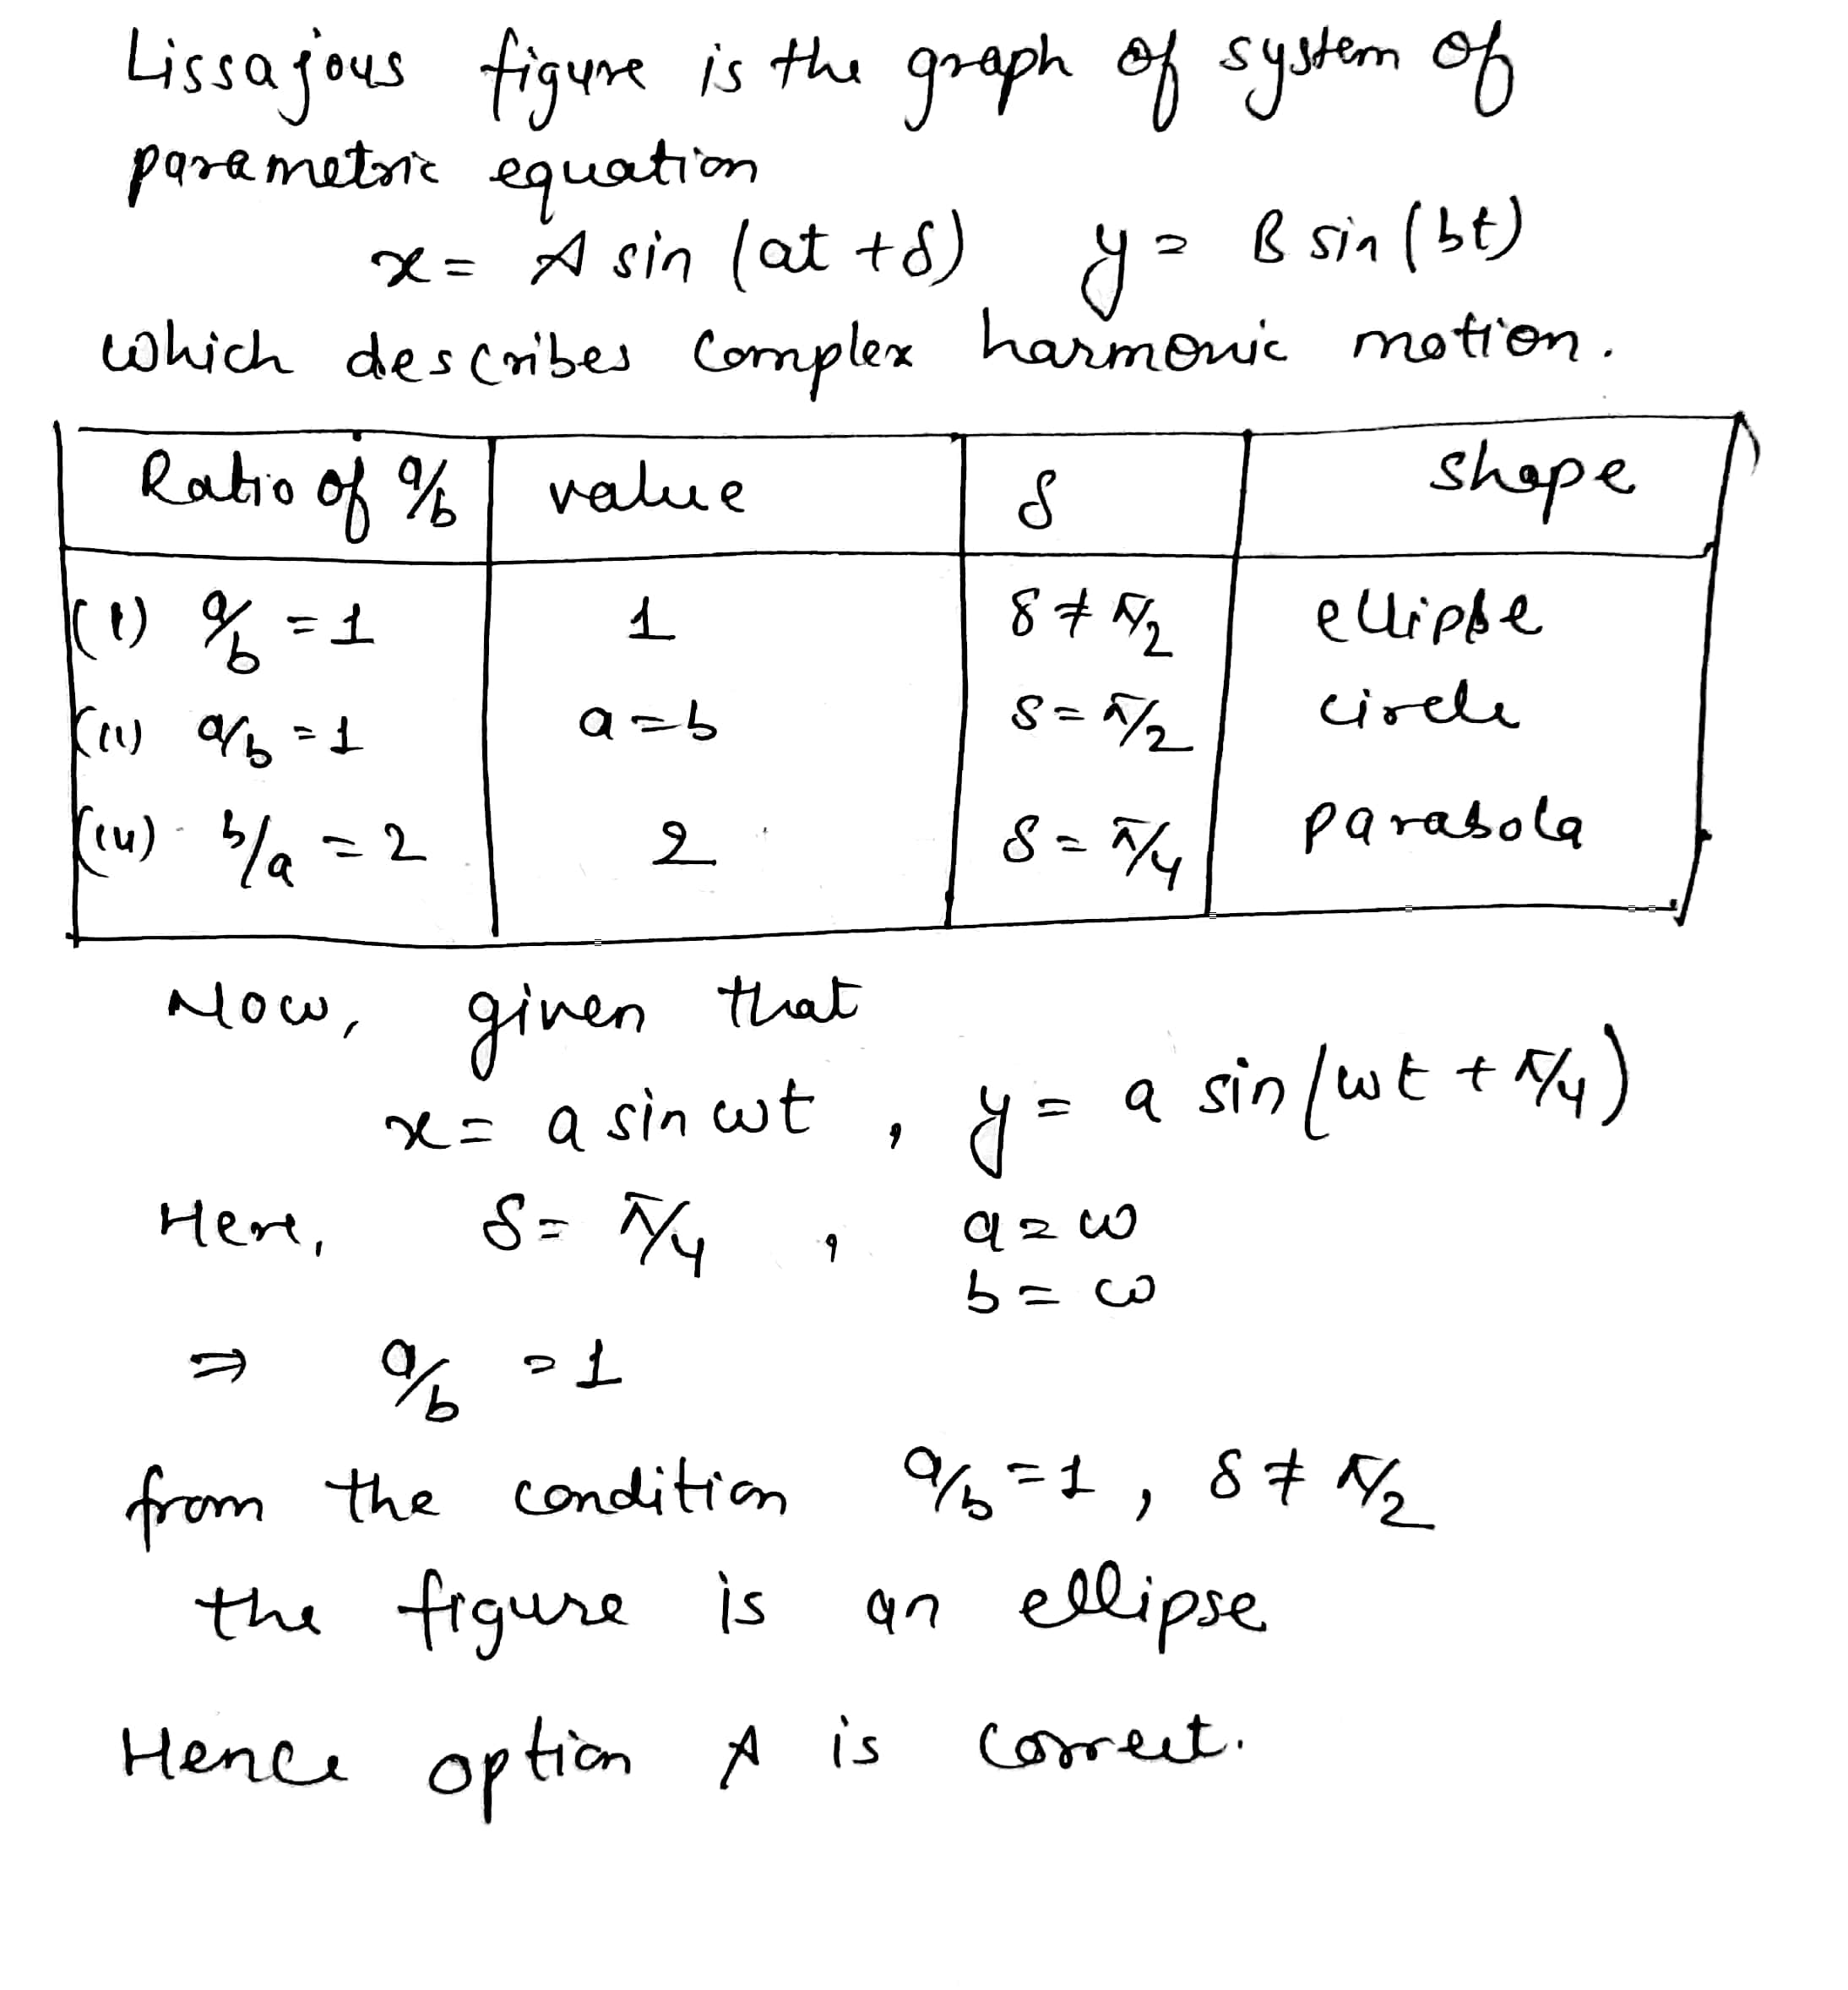 Lissajous figure is the graph of system of
parametric equation
x = A sin (at + δ) y = B sin (bt)
which describes complex harmonic motion.
Ratio of a/b value δ shape
(i) a/b = 1 1 δ ≠ π/2 ellipse
(ii) a/b = 1 a = b δ = π/2 circle
(iii) b/a = 2 2 δ = π/4 parabola
Now, given that
x = a sin ωt , y = a sin (ωt + π/4)
Here, δ = π/4 , a = ω
b = ω
⇒ a/b = 1
from the condition a/b = 1, δ ≠ π/2
the figure is an ellipse
Hence option A is correct.